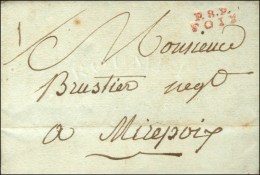 P.8.P.
FOIX
Monsieur
Brustier negt
a Mirepoix